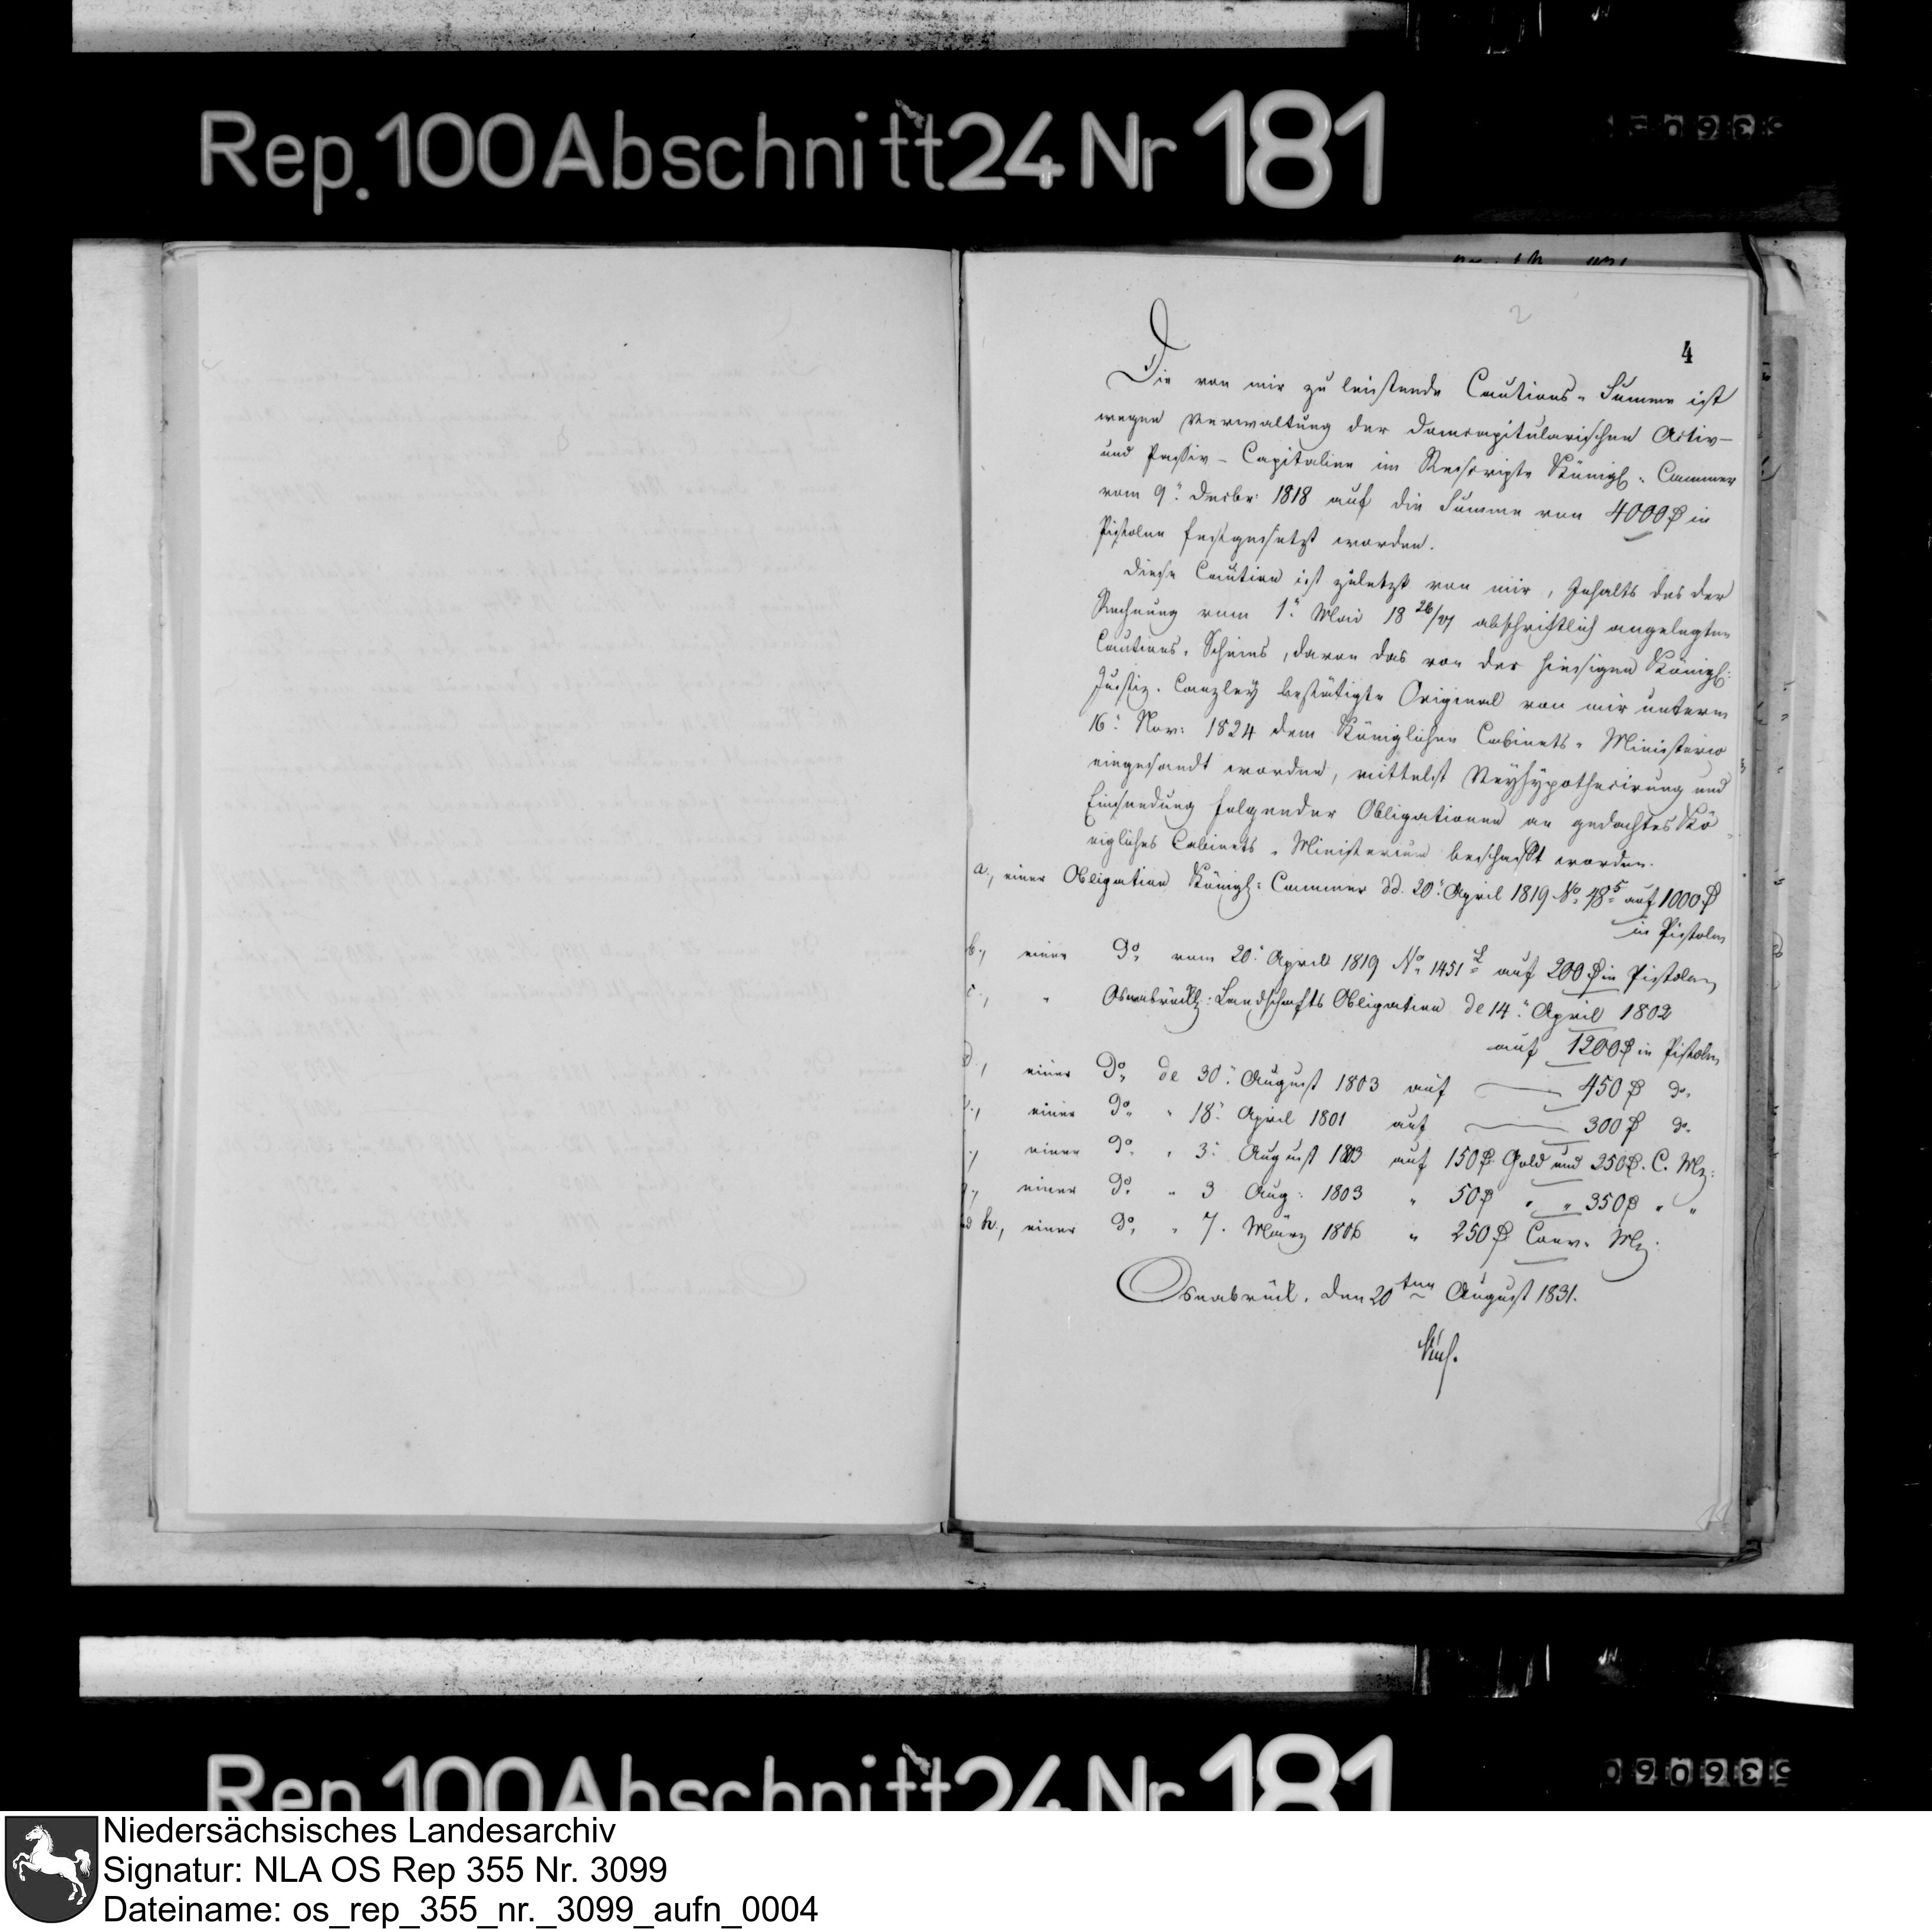 Rep. 100 Abschnitt 24 Nr 181
2
4
Die von mir zu leistende Cautions-Summe ist
wegen Verwaltung der domcapitularischen Activ-
und Passiv-Capitalien im Rescripte Königl: Cammer
vom 9: Decbr: 1818 auf die Summe von 4000 ₰ in
Pistolen festgesetzt worden.
Diese Caution ist zuletzt von mir, Inhalts des der
Rechnung vom 1: Mai 18 26/27 abschriftlich angelegten
Cautions-Scheins, davon das von der hiesigen Königl:
Justiz-Canzley bestätigte Original von mir unterm
16: Nov: 1824 dem Königlichen Cabinets-Ministerio
eingesandt worden, mittelst Verhypothecirung und
Einsendung folgender Obligationen an gedachtes Kö-
nigliches Cabinets-Ministerium beschafft worden.
a., einer Obligation Königl: Cammer dd. 20: April 1819 No. 48 auf 1000 ₰
in Pistolen
b., einer Do. vom 20: April 1819 No. 1451 auf 200 ₰ in Pistolen
c., " Osnabrück: Landschafts Obligation de 14: April 1802
auf 1200 ₰ in Pistolen
d., einer Do. de 30: August 1803 auf — 450 ₰ Do.
einer Do. " 18: April 1801 auf — 300 ₰ Do.
einer Do. " 3: August 1803 auf 150 ₰ Gold und 250 ₰ C. Mz:
g., einer Do. " 3 Aug: 1803 " 50 ₰ " " 350 ₰ " "
und h., einer Do. " 7. März 1806 " 250 ₰ Conv. Mz:
Osnabrück, den 20ten August 1831.
Rep. 100 Abschnitt 24 Nr 181
Niedersächsisches Landesarchiv
Signatur: NLA OS Rep 355 Nr. 3099
Dateiname: os_rep_355_nr._3099_aufn_0004